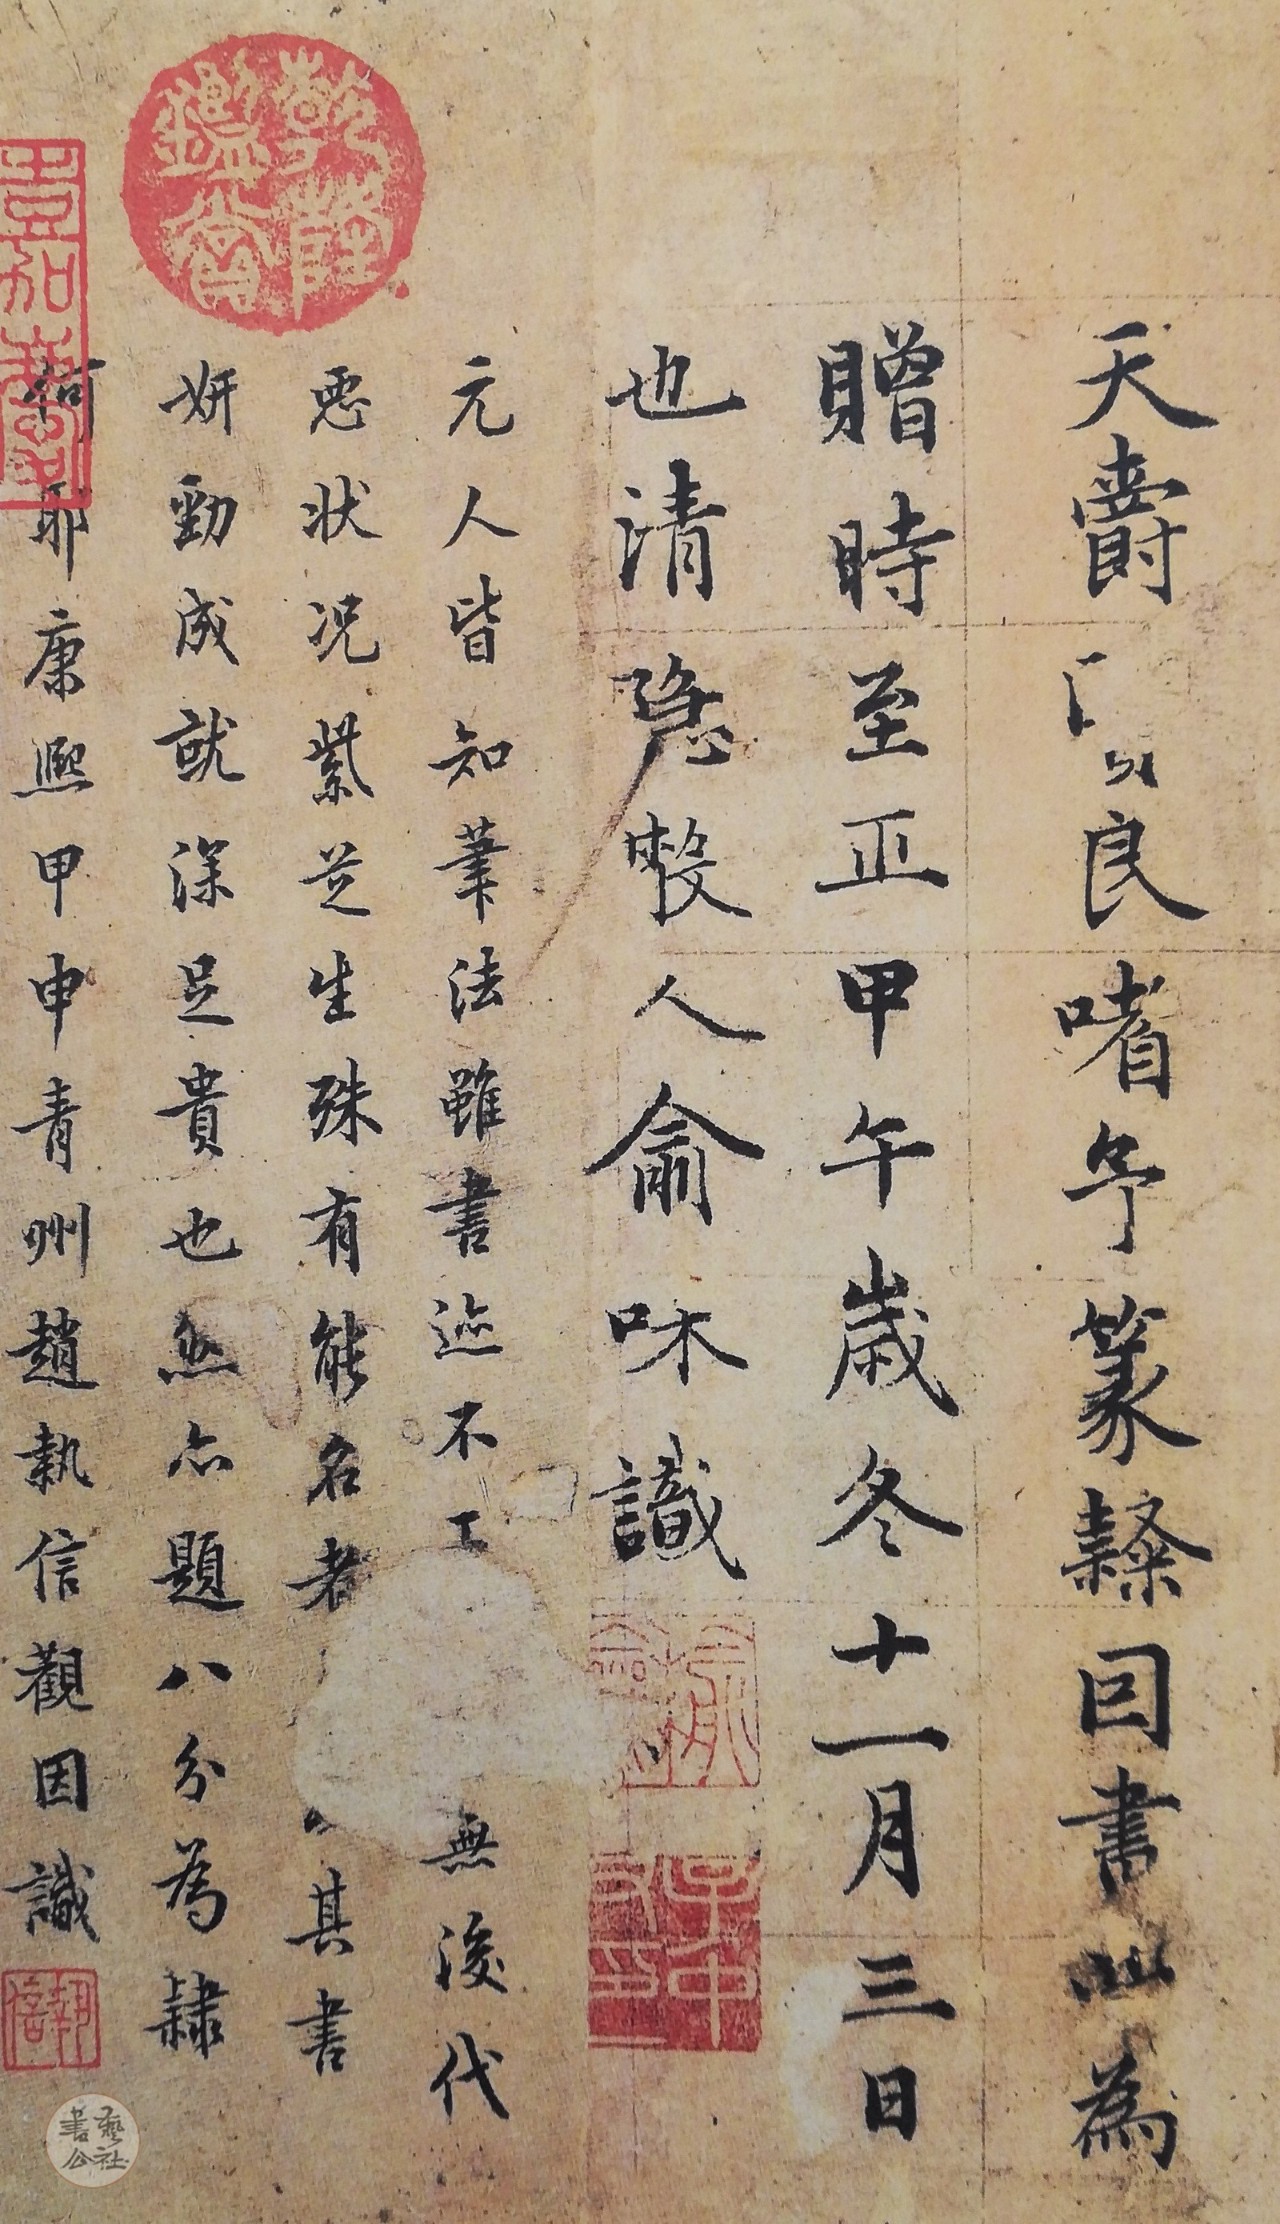 天爵 良嗜予篆隸回書此為
贈時至正甲午歲冬十一月三日
也清隱散人俞咊識
元人皆知筆法雖書迹不工 無後代
惡状况紫芝生殊有能名者 其書
妍勁成就深足貴也然亦題八分為隸
何耶康熙甲申青州趙執信觀因識
乾隆鑑賞
執信
藝書公社